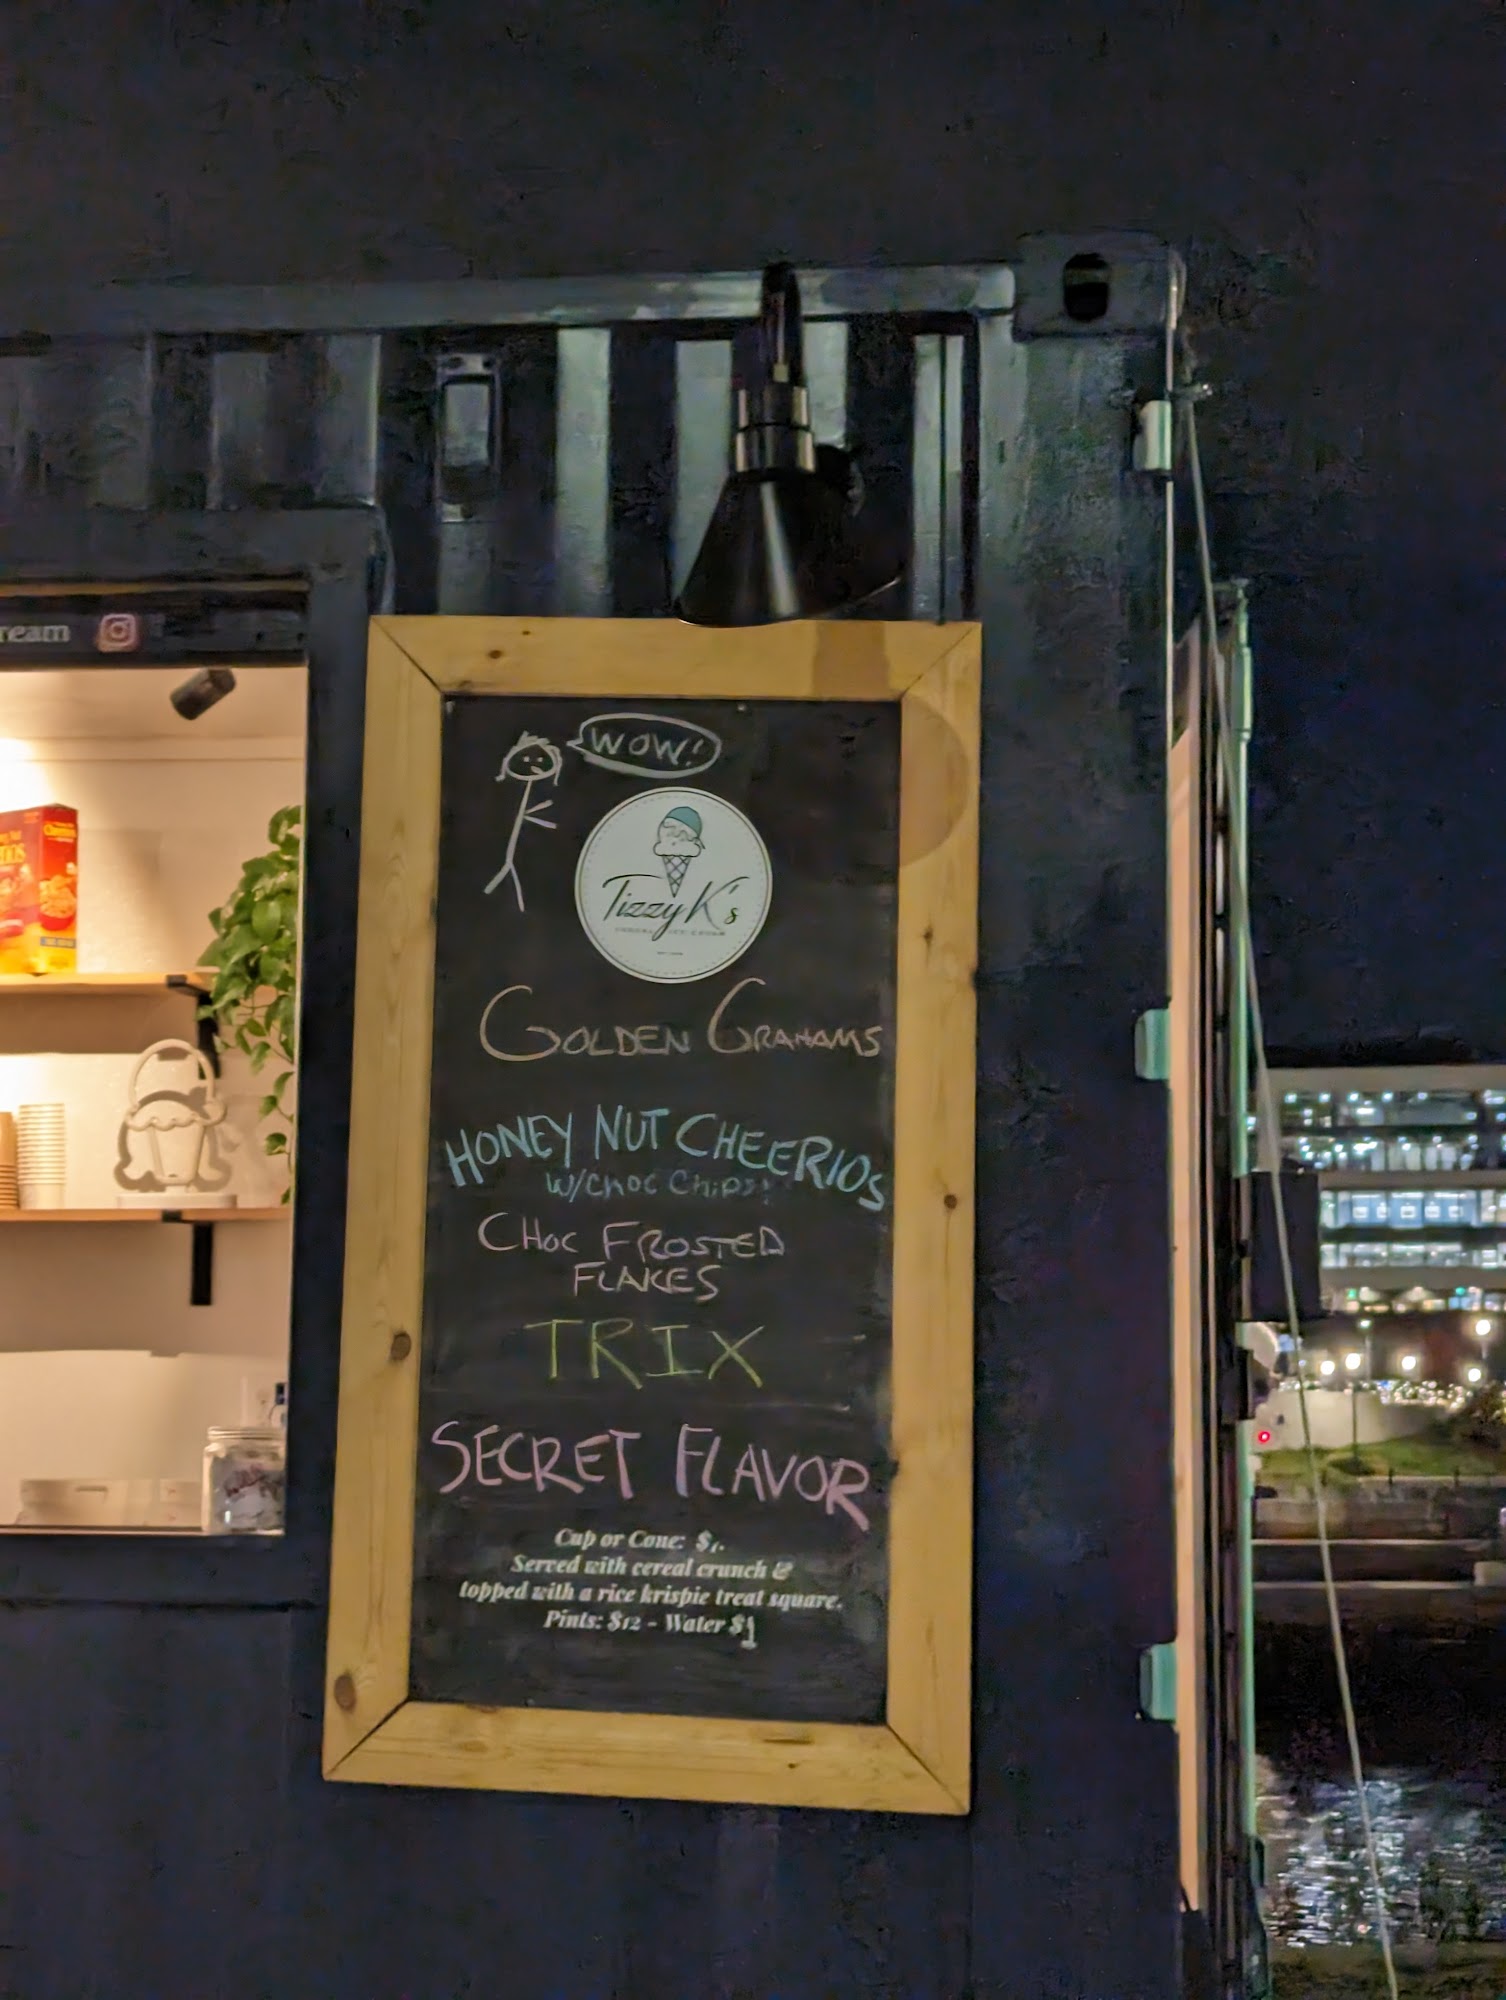 ream
WOW!
Tizzy K's
GOLDEN GRAHAMS
HONEY NUT CHEERIOS
W/CHOC CHIPS!
CHOC FROSTED
FLAKES
TRIX
SECRET FLAVOR
Cup or Cone: $7.
Served with cereal crunch &
topped with a rice krispie treat square.
Pints: $12 - Water $1